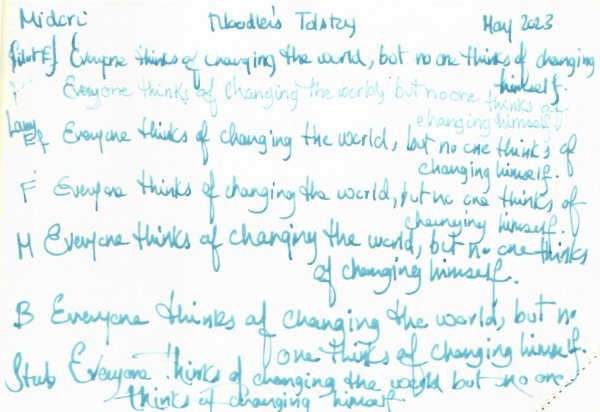 Midori Noodler's Tolstoy May 2023
Pilot EF Everyone thinks of changing the world, but no one thinks of changing
himself.
F Everyone thinks of changing the world, but no one thinks of
changing himself.
Lamy EF Everyone thinks of changing the world, but no one thinks of
changing himself.
F Everyone thinks of changing the world, but no one thinks of
changing himself.
M Everyone thinks of changing the world, but no one thinks
of changing himself.
B Everyone thinks of changing the world, but no
one thinks of changing himself.
Stub Everyone thinks of changing the world but no one
thinks of changing himself